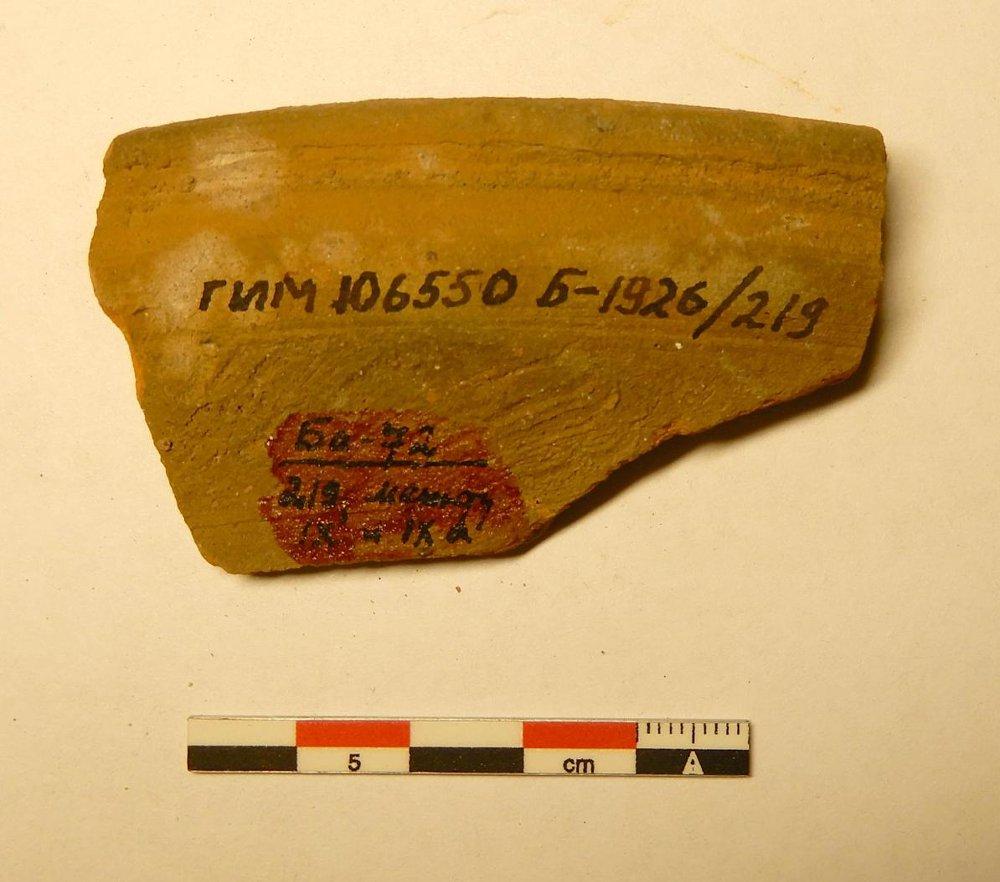 ГИМ 106550 Б-1926/219
Ба-72
219, между
IX и IX а
5 cm